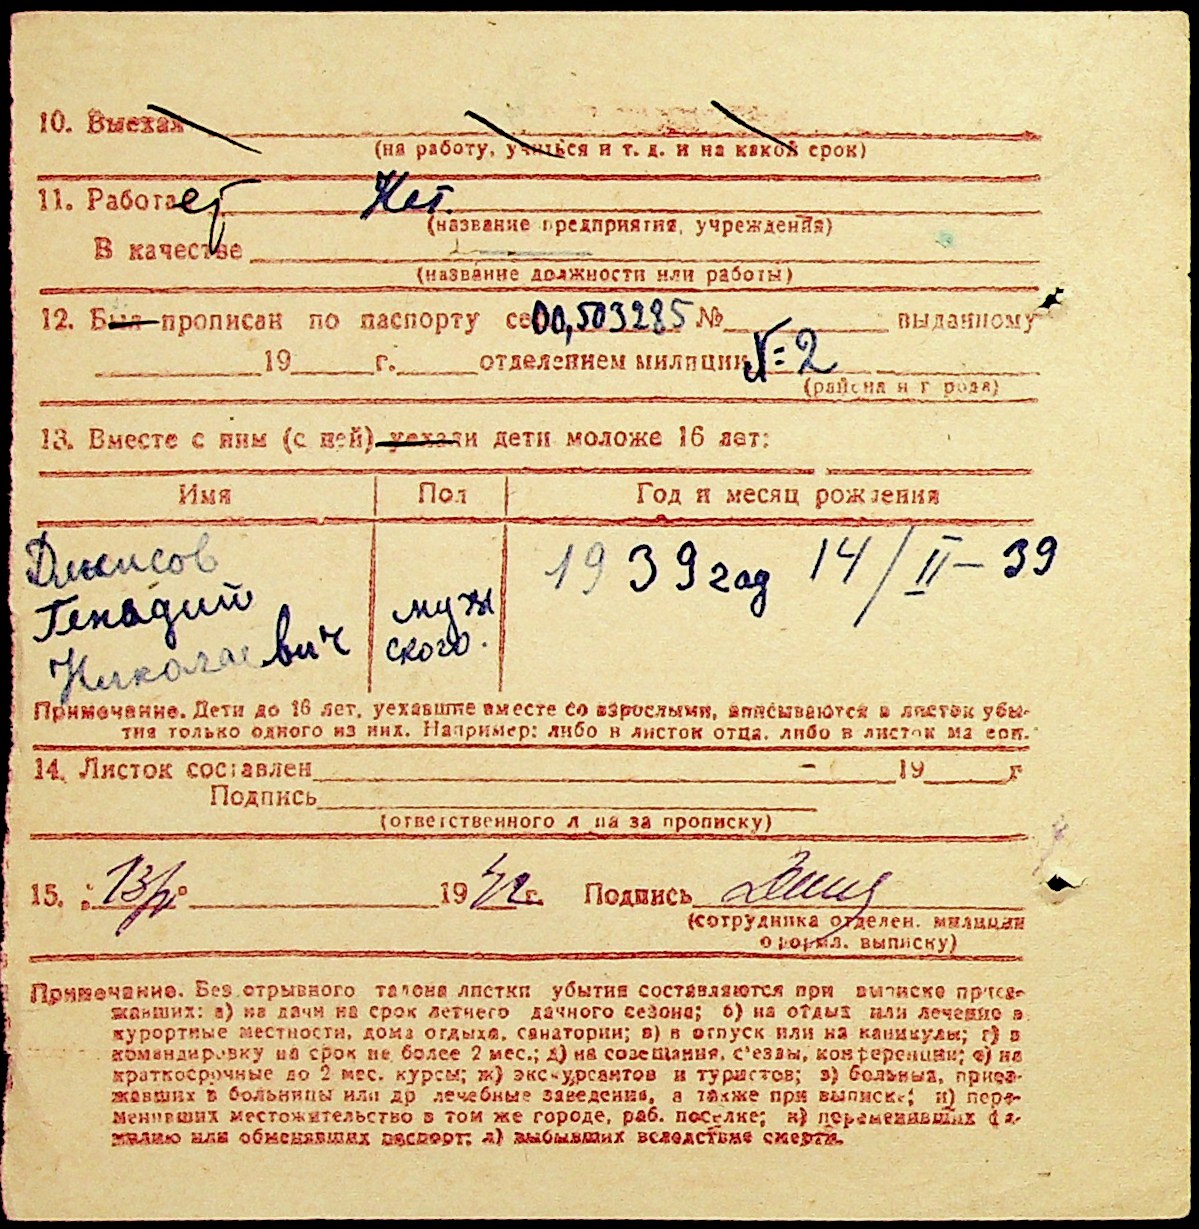 10. Выехал
(на работу, учиться и т. д. и на какой срок)
11. Работает Нет.
(название предприятия, учреждения)
В качестве
(название должности или работы)
12. Был прописан по паспорту се 00,503285 № выданному
19 г. отделением милиции №=2
(района и города)
13. Вместе с ним (с ней) уехали дети моложе 16 лет:
Имя Пол Год и месяц рождения
Денисов 1939 год 14/II-39
Генадий муж
Николаевич ского.
Примечание. Дети до 16 лет, уехавшие вместе со взрослыми, вписываются в листок убы-
тия только одного из них. Например: либо в листок отца, либо в листок матери.
14. Листок составлен 19 г
Подпись
(ответственного лица за прописку)
15. 19 42 г. Подпись
(сотрудника отделен. милиции
оформл. выписку)
Примечание. Без отрывного талона листки убытия составляются при выписке приез-
жавших: а) на дачи на срок летнего дачного сезона; б) на отдых или лечение в
курортные местности, дома отдыха, санатории; в) в отпуск или на каникулы; г) в
командировку на срок не более 2 мес.; д) на совещания, с'езды, конференции; е) на
краткосрочные до 2 мес. курсы; ж) экскурсантов и туристов; з) больных, приез-
жавших в больницы или др лечебные заведения, а также при выписке; и) пере-
менивших местожительство в том же городе, раб. поселке; к) переменивших фа-
милию или обменявших паспорт; л) выбывших вследствие смерти.